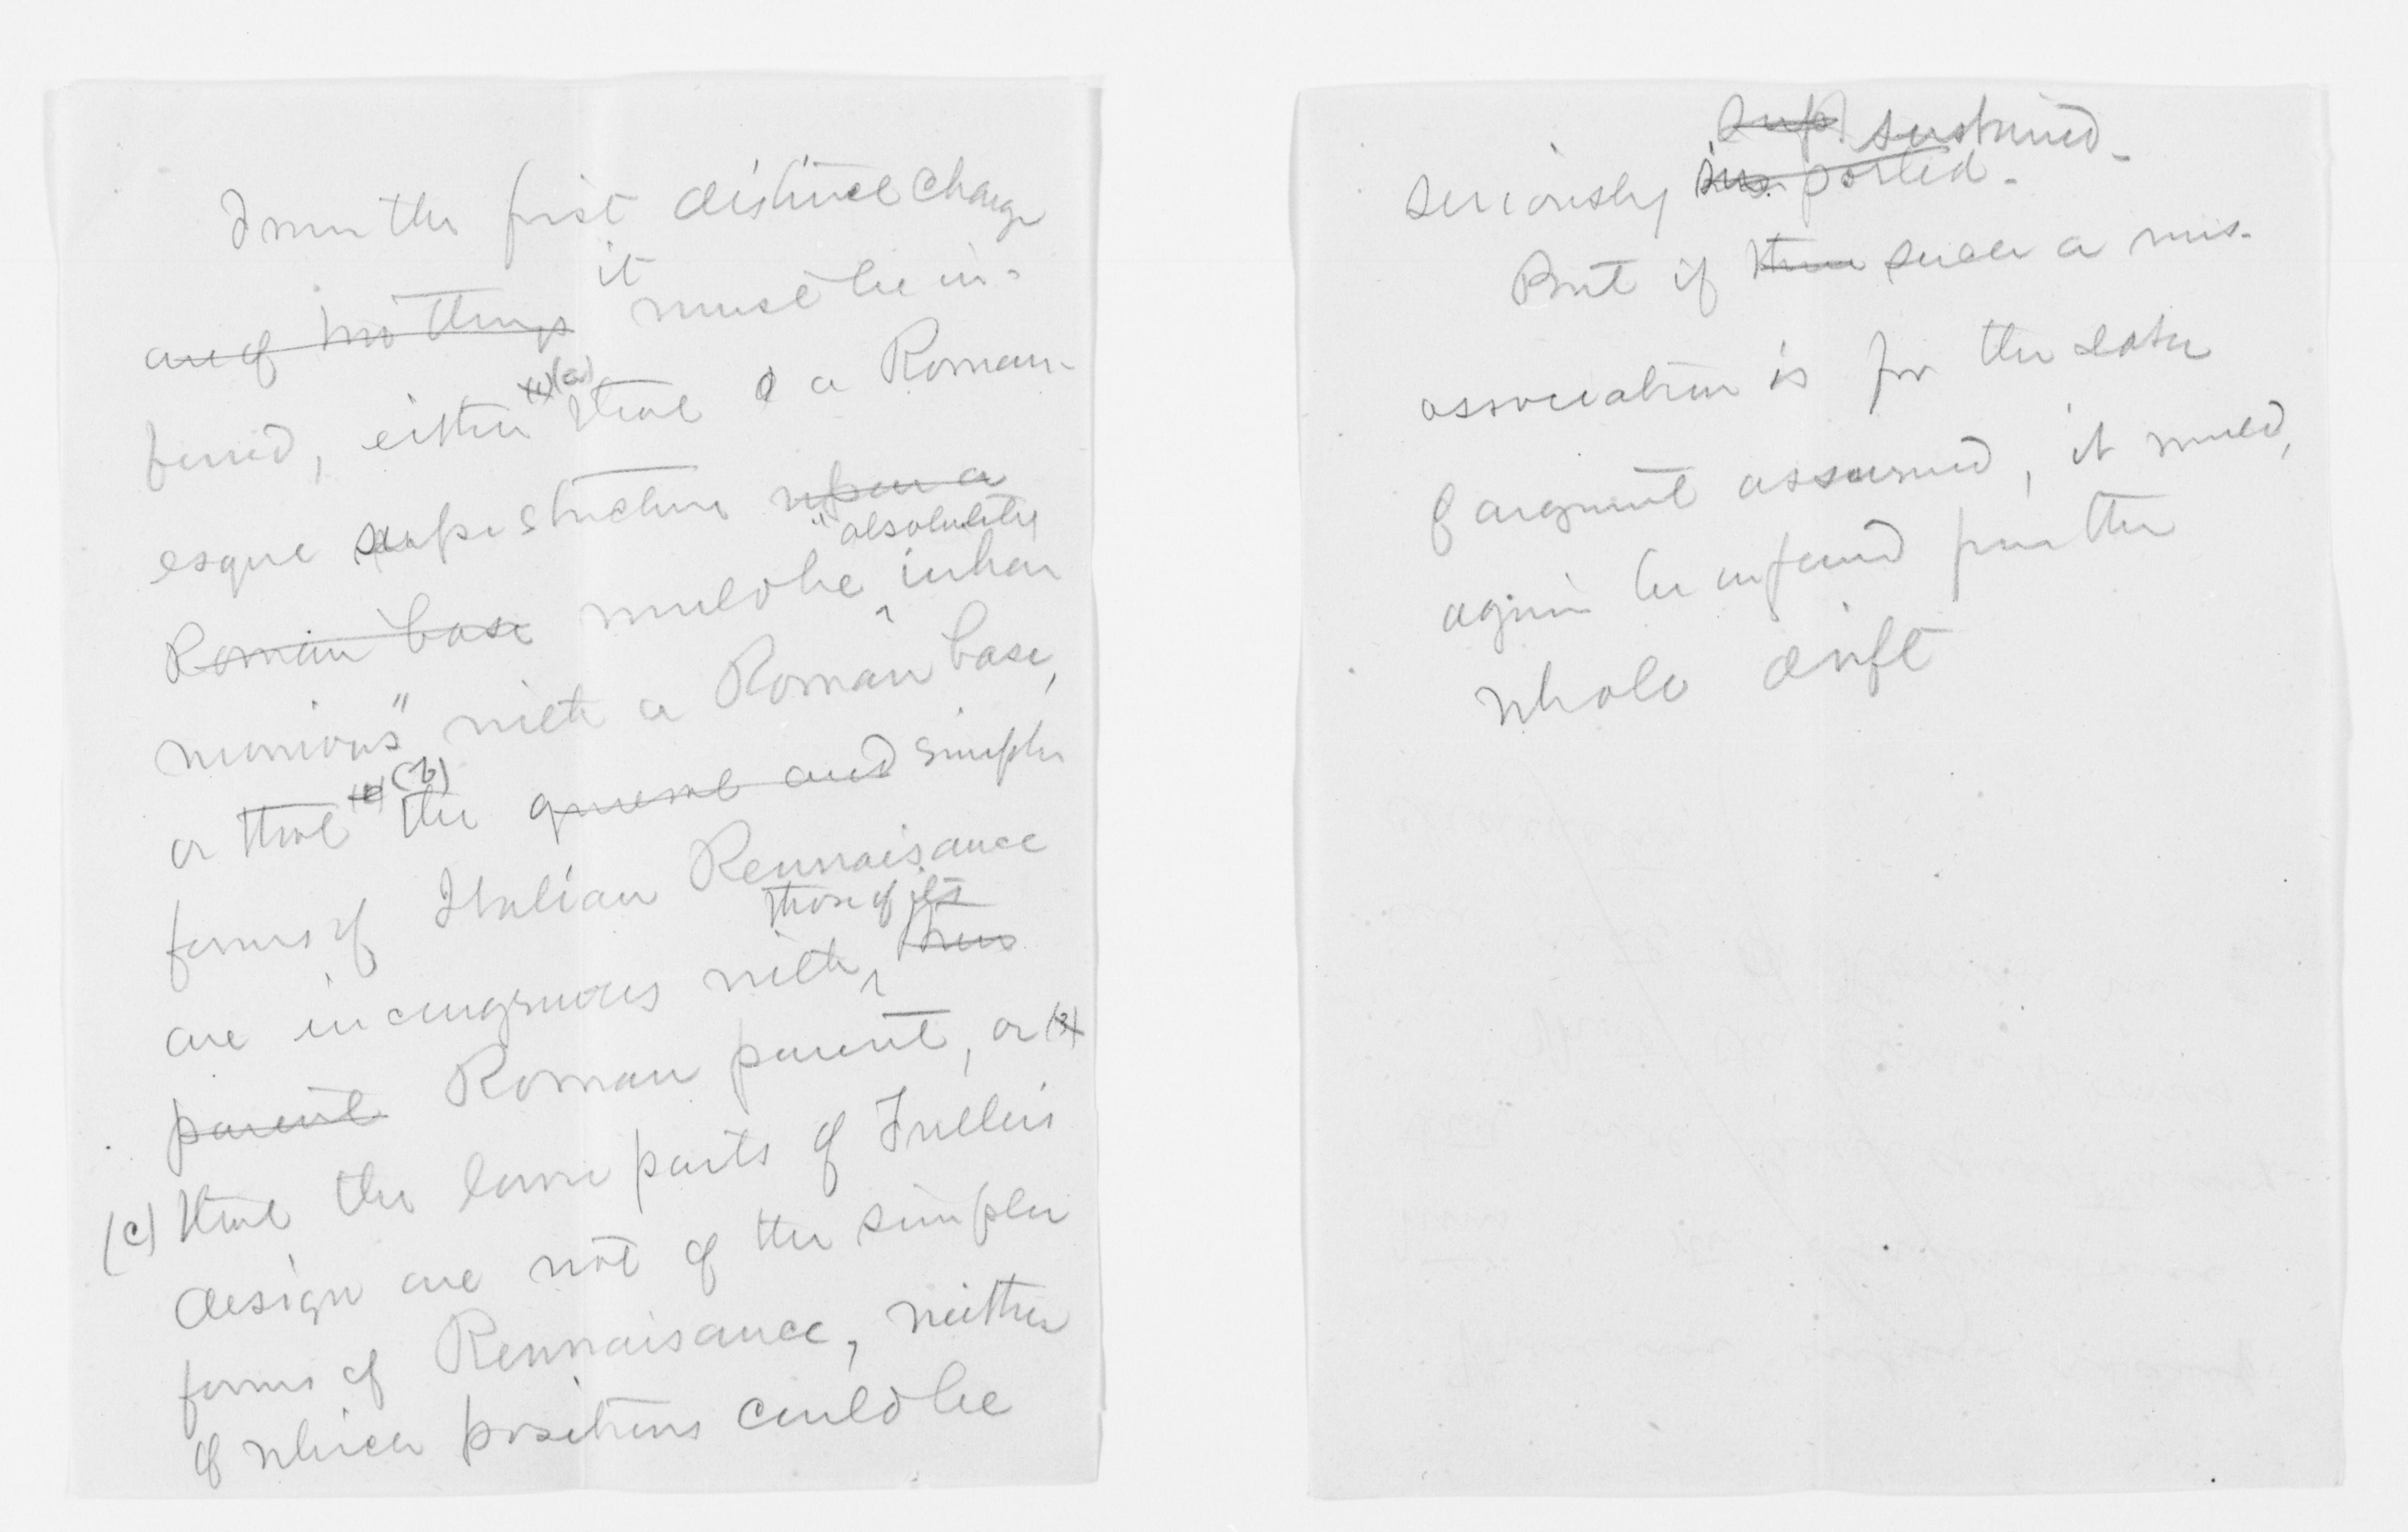 From the first distinct charge
one of two things it must be in-
ferred, either (1) (a) that a a Roman-
esque superstructure upon a
Roman base would be "absolutely inhar
monious" with a Roman base,
or that (2) (b) the general and simpler
forms of Italian Rennaisance
are incongruous with those of its
parent Roman parent, or (3)
(c) that the lower parts of Fuller's
design are not of the simpler
forms of Rennaisance, neither
of which positions could be
seriously sup sustained.
supported.
But if such a mis-
association is for the sake
of argument assumed, it would,
again be inferred from the
whole drift